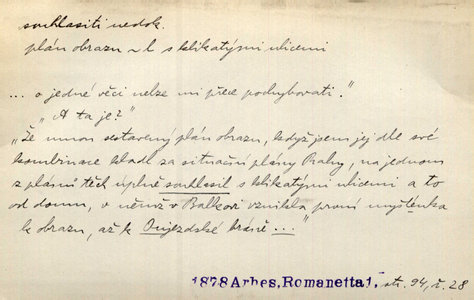 souhlasiti nedok.
plán obrazu ~ l s klikatými ulicemi
... o jedné věci nelze mi přece pochybovati."
„A ta je?"
„Že mnou sestavený plán obrazu, když jsem jej dle své
kombinace kladl za situační plány Prahy, na jednom
z plánů těch úplně souhlasil s klikatými ulicemi a to
od domu, v němž v Balkovi vznikla první myšlénka
k obrazu, až k Oujezdské bráně ..."
1878 Arbes, Romanetta 1, str. 94, č. 28